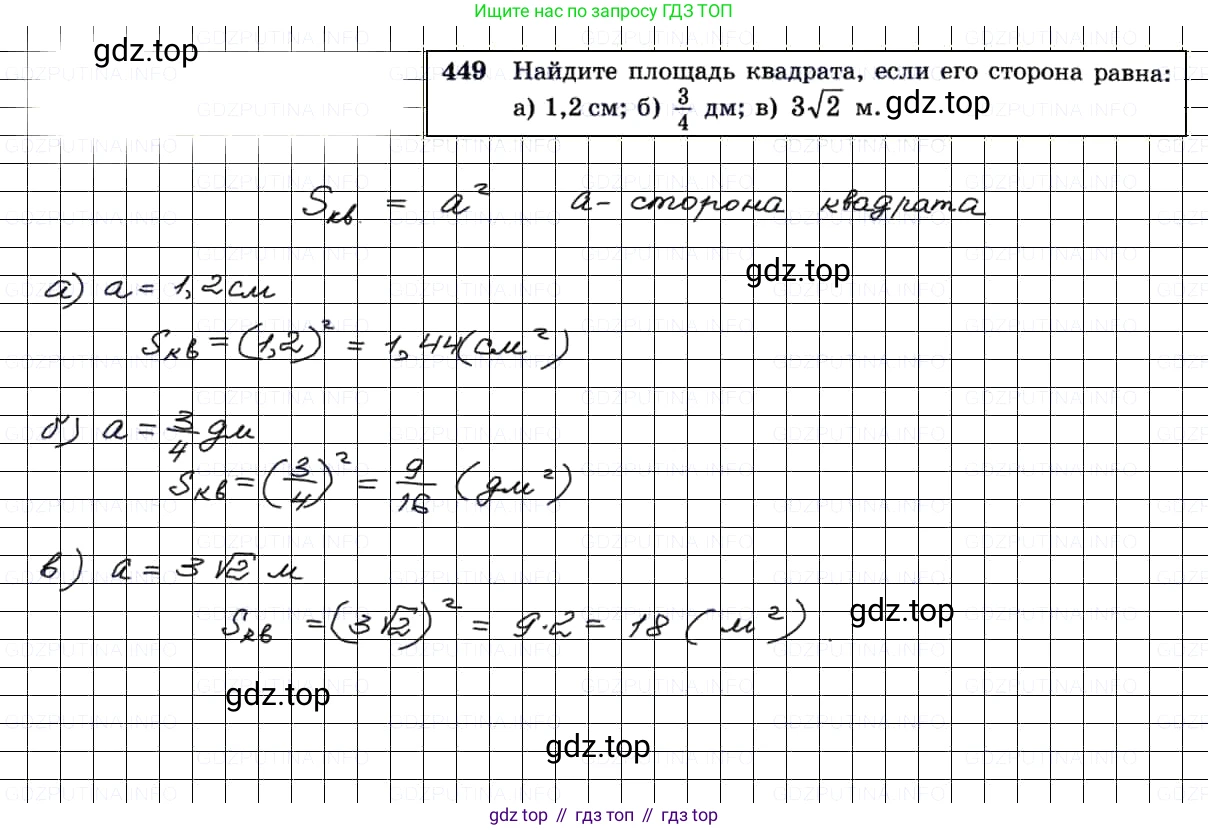 Ищите нас по запросу ГДЗ ТОП
gdz.top
449 Найдите площадь квадрата, если его сторона равна:
а) 1,2 см; б) 3/4 дм; в) 3√2 м.
gdz.top
Sкв. = a² a - сторона квадрата
gdz.top
а) a = 1,2 см
Sкв = (1,2)² = 1,44 (см²)
б) a = 3/4 дм
Sкв = (3/4)² = 9/16 (дм²)
в) a = 3√2 м
Sкв = (3√2)² = 9·2 = 18 (м²).
gdz.top
gdz.top
gdz.top
gdz top // гдз топ // гдз top
GDZPUTINA.INFO